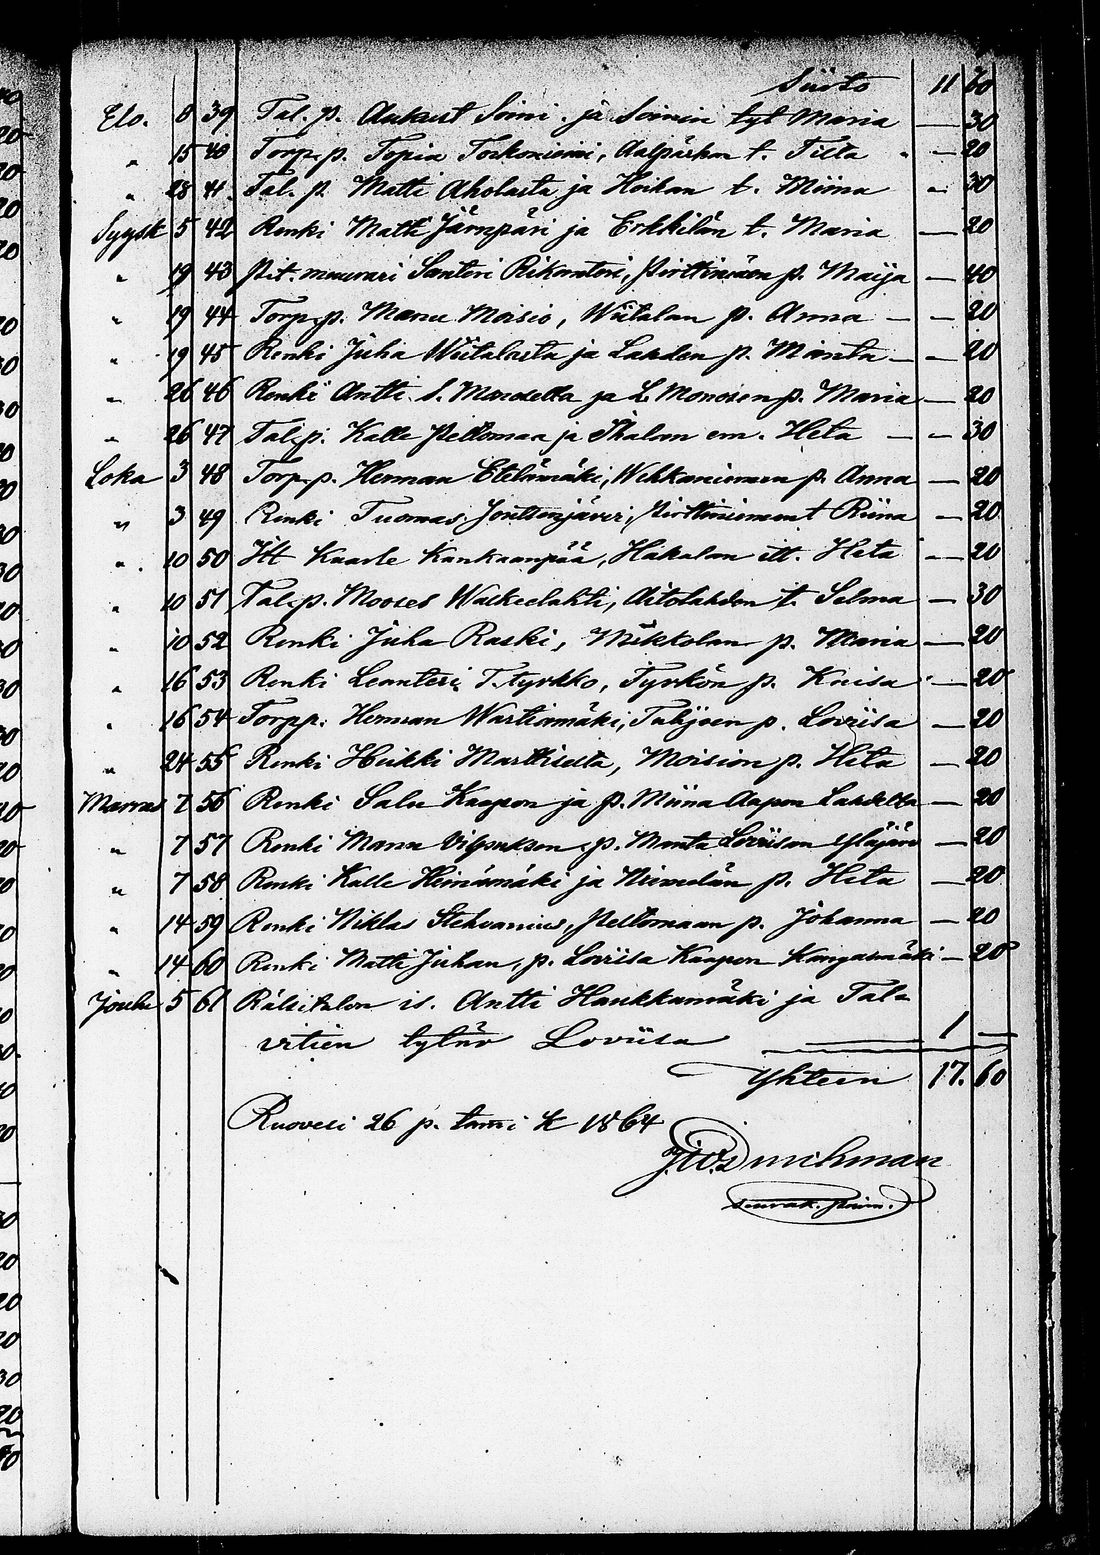 Siirto 11 60
Elo. 8 39 Tal. p. Aukust Soini ja Soinin tyt Maria — 30
„ 15 40 Torp. p. Topia Toskoniemi, Aalpärkan t. Tilta „ — 20
„ 28 41. Tal. p. Matti Aholasta ja Hoikan t. Miina „ 30
Syysk 5 42 Renki Matti Järvipäri ja Erkkilän t. Maria — 20
„ 19 43 Pit. muurari Santeri Rikonteri, Pirttimäen p. Maija — 40
„ 19 44 Torp. p. Manu Moisio, Wiitalan p. Anna — — 20
„ 19 45 Renki Juha Wiitalasta ja Lahden p. Manta — — 20
„ 26 46 Renki Antti S. Marosella ja L. Monosen p. Maria — 20
„ 26 47 Tal. p. Kalle Peltomaa ja Ihalan em. Heta — — 30
Loka 3 48 Torp. p. Herman Etelämäki, Wehkaniemen p. Anna — 20
„ 3 49 Renki Tuomas Jouttenjärvi, Pirttiniemen t Riina — 20
„ 10 50 Itt Kaarle Kankaanpää, Hakalan itt. Heta — 20
„ 10 51 Tal. p. Mooses Walkeelahti, Aitolahden t. Selma — 30
„ 10 52 Renki Juha Raski, Mikkolan p. Maria — 20
„ 16 53 Renki Leanteri T. tyrkko, Tyrkön p. Kaisa — 20
„ 16 54 Torp p. Herman Wartiamäki, Tuhjoen p. Loviisa — 20
„ 24 55 Renki Heikki Marttiselta, Moision p. Heta — 20
Marras 7 56 Renki Salu Kaapon ja p. Miina Aapon Lahdella — 20
„ 7 57 Renki Manu Vilpunkson p. Manta Loviisan Yläjärv — 20
„ 7 58 Renki Kalle Heinämäki ja Niemelän p. Heta — 20
„ 14 59 Renki Niklas Stehvanius, Peltomaan p. Johanna — 20
„ 14 60 Renki Matti Juhan, p. Loviisa Kaapon Kangasmäki — 20
Joulu 5 61 Rälsitalon is. Antti Haukkamäki ja Tal-
vitien tytär Loviisa 1 —
Yhteen 17. 60
Ruovesi 26 p. tammi k 1864
seurak. Paim.